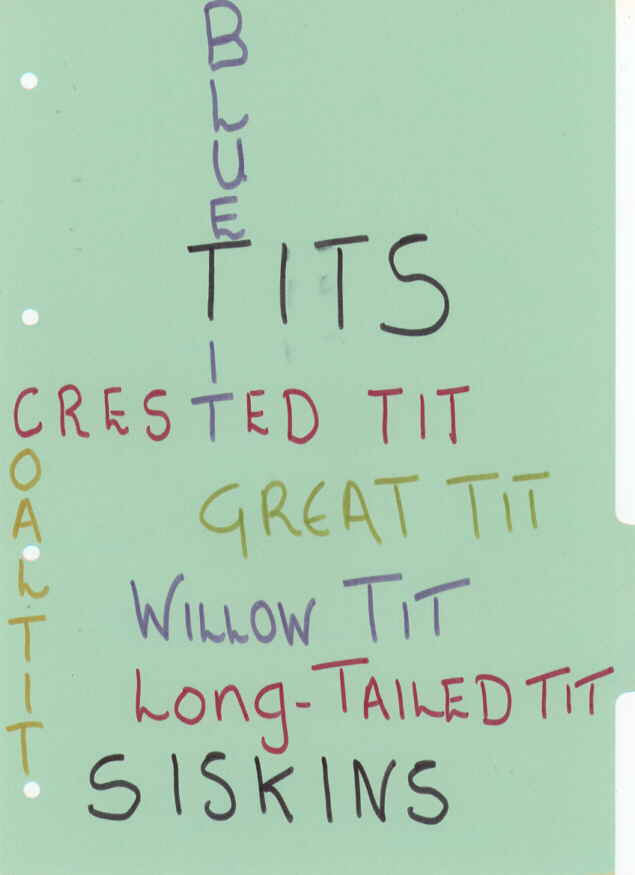 BLUE
TITS
TIT
CRESTED TIT
COAL TIT
GREAT TIT
WILLOW TIT
Long-TAILED TIT
SISKINS